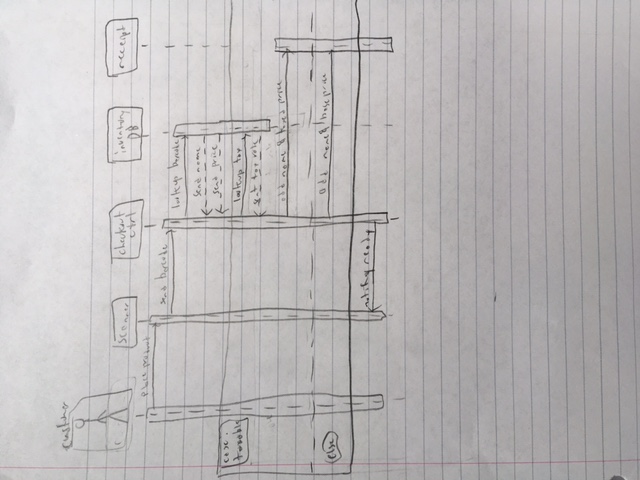 customer
scanner
checkout
ctrl
inventory
DB
receipt
place product
send barcode
lookup barcode
send name
send price
case:
taxable
lookup tax
sent tax rate
add name & taxed price
else
add name & base price
notify ready